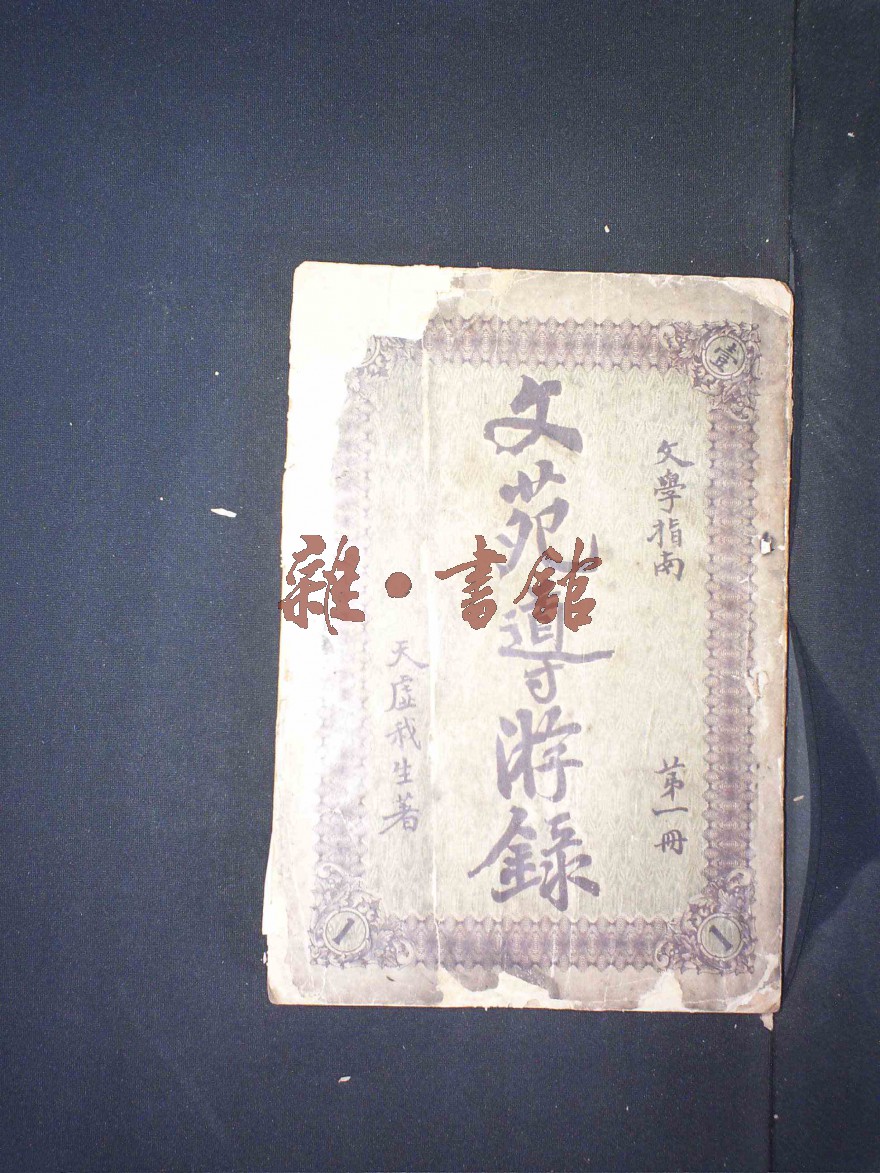 壹
文學指南
第一冊
文苑導游錄
天虛我生著
1
1
雜·書館